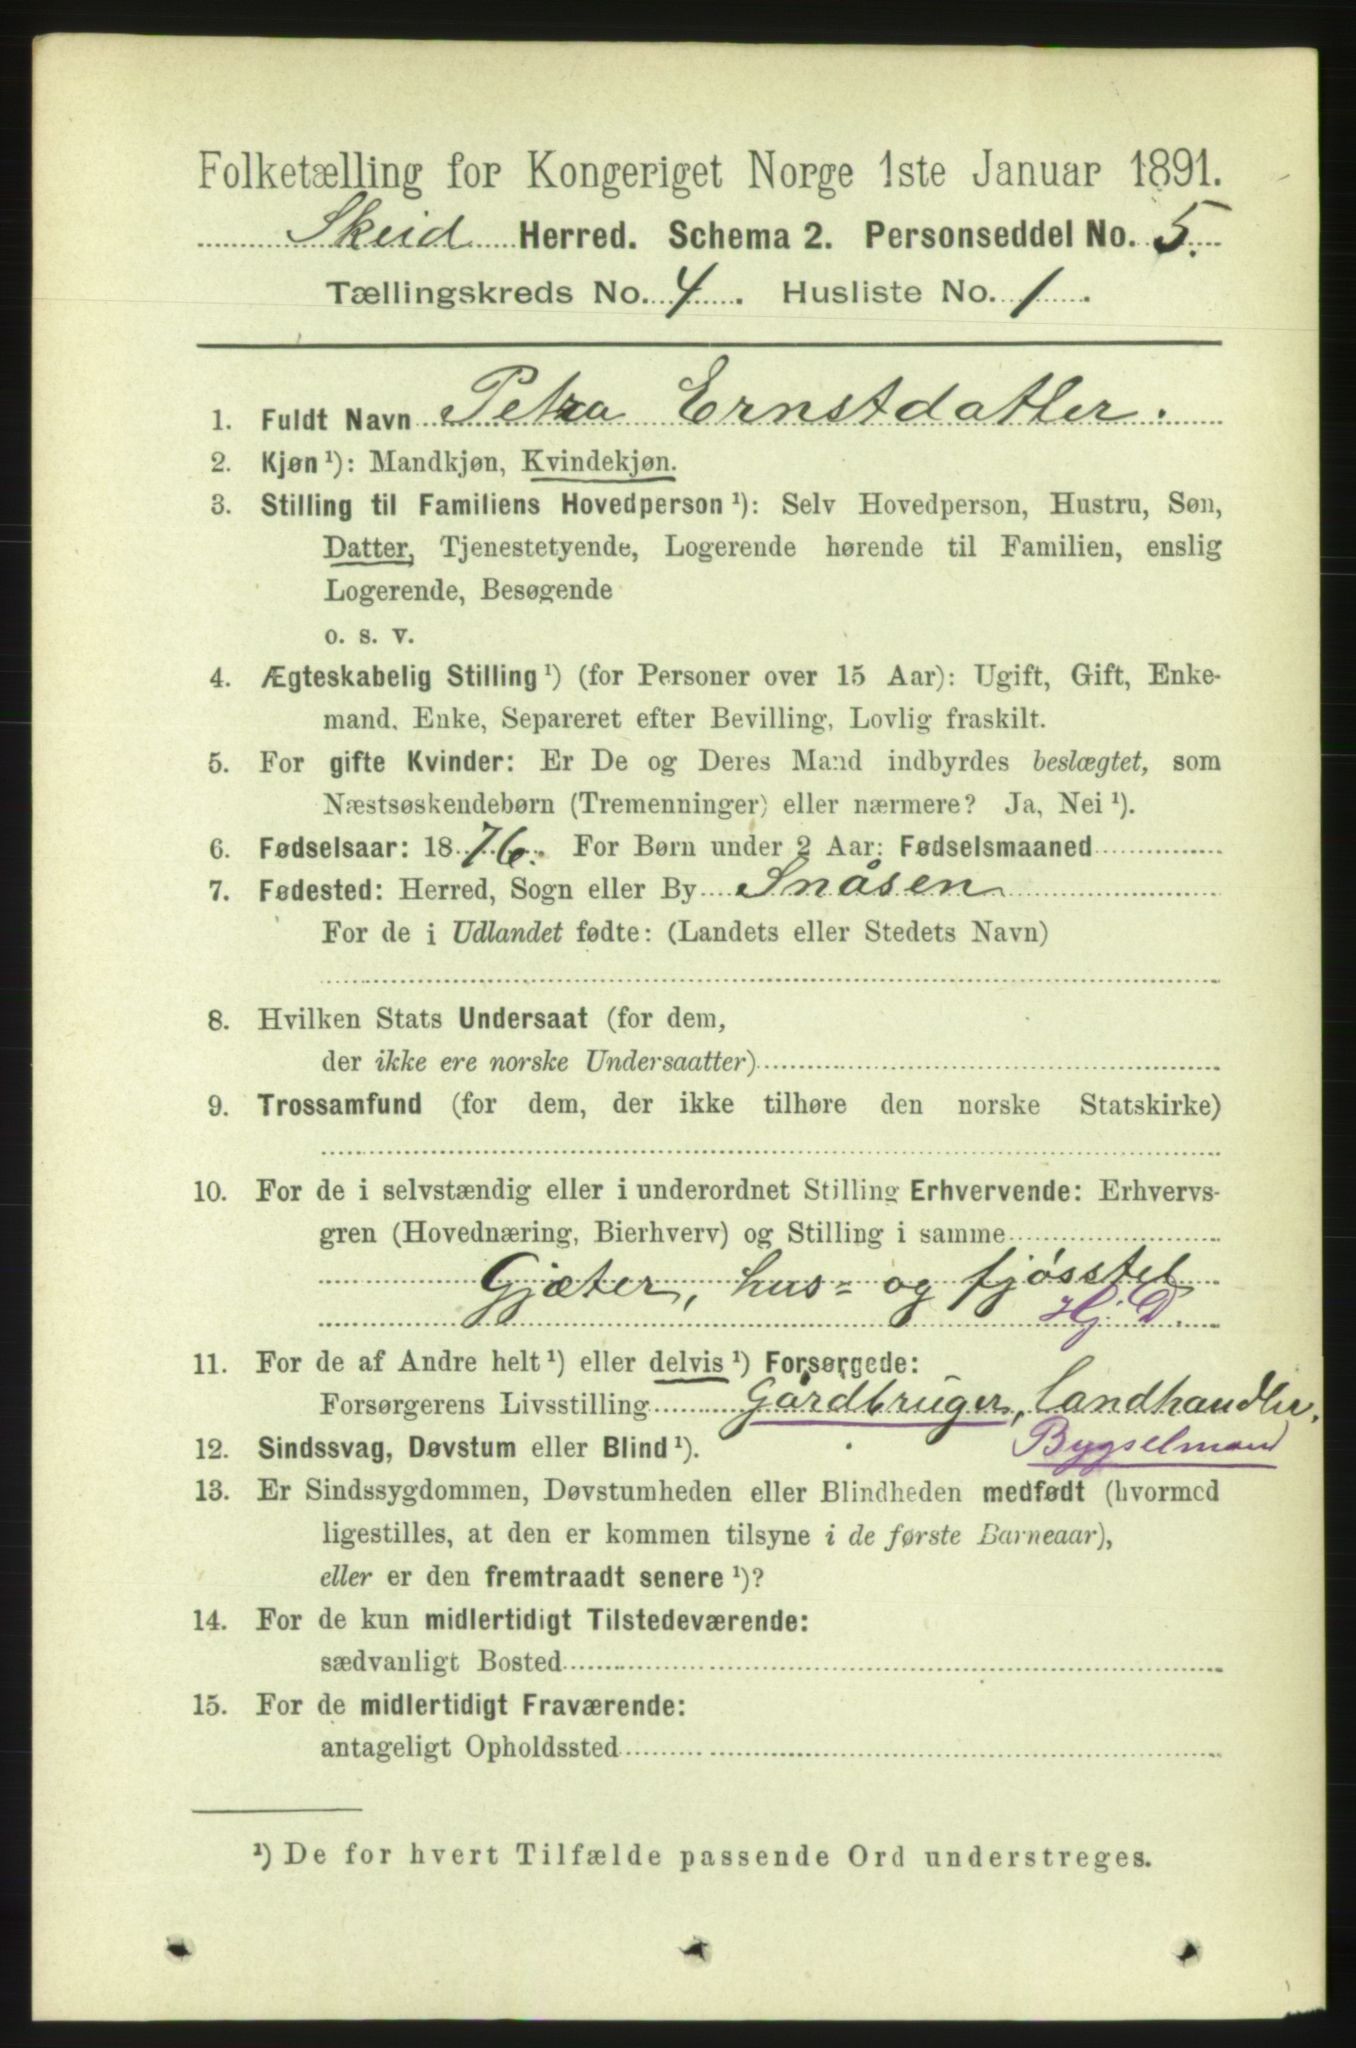 Folketælling for Kongeriget Norge 1ste Januar 1891.
Skeid Herred. Schema 2. Personseddel No. 5.
Tællingskreds No. 4. Husliste No. 1.
1. Fuldt Navn Petra Ernstdatter.
2. Kjøn ¹): Mandkjøn, Kvindekjøn.
3. Stilling til Familiens Hovedperson ¹): Selv Hovedperson, Hustru, Søn,
Datter, Tjenestetyende, Logerende hørende til Familien, enslig
Logerende, Besøgende
o. s. v.
4. Ægteskabelig Stilling ¹) (for Personer over 15 Aar): Ugift, Gift, Enke-
mand, Enke, Separeret efter Bevilling, Lovlig fraskilt.
5. For gifte Kvinder: Er De og Deres Mand indbyrdes beslægtet, som
Næstsøskendebørn (Tremenninger) eller nærmere? Ja, Nei ¹).
6. Fødselsaar: 1876. For Børn under 2 Aar: Fødselsmaaned
7. Fødested: Herred, Sogn eller By Snåsen
For de i Udlandet fødte: (Landets eller Stedets Navn)
8. Hvilken Stats Undersaat (for dem,
der ikke ere norske Undersaatter)
9. Trossamfund (for dem, der ikke tilhøre den norske Statskirke)
10. For de i selvstændig eller i underordnet Stilling Erhvervende: Erhvervs-
gren (Hovednæring, Bierhverv) og Stilling i samme
Gjæter, hus= og fjøsstel
Hj. D.
11. For de af Andre helt ¹) eller delvis ¹) Forsørgede:
Forsørgerens Livsstilling Gårdbruger, landhandler.
Bygselmand
12. Sindssvag, Døvstum eller Blind ¹).
13. Er Sindssygdommen, Døvstumheden eller Blindheden medfødt (hvormed
ligestilles, at den er kommen tilsyne i de første Barneaar),
eller er den fremtraadt senere ¹)?
14. For de kun midlertidigt Tilstedeværende:
sædvanligt Bosted
15. For de midlertidigt Fraværende:
antageligt Opholdssted
¹) De for hvert Tilfælde passende Ord understreges.